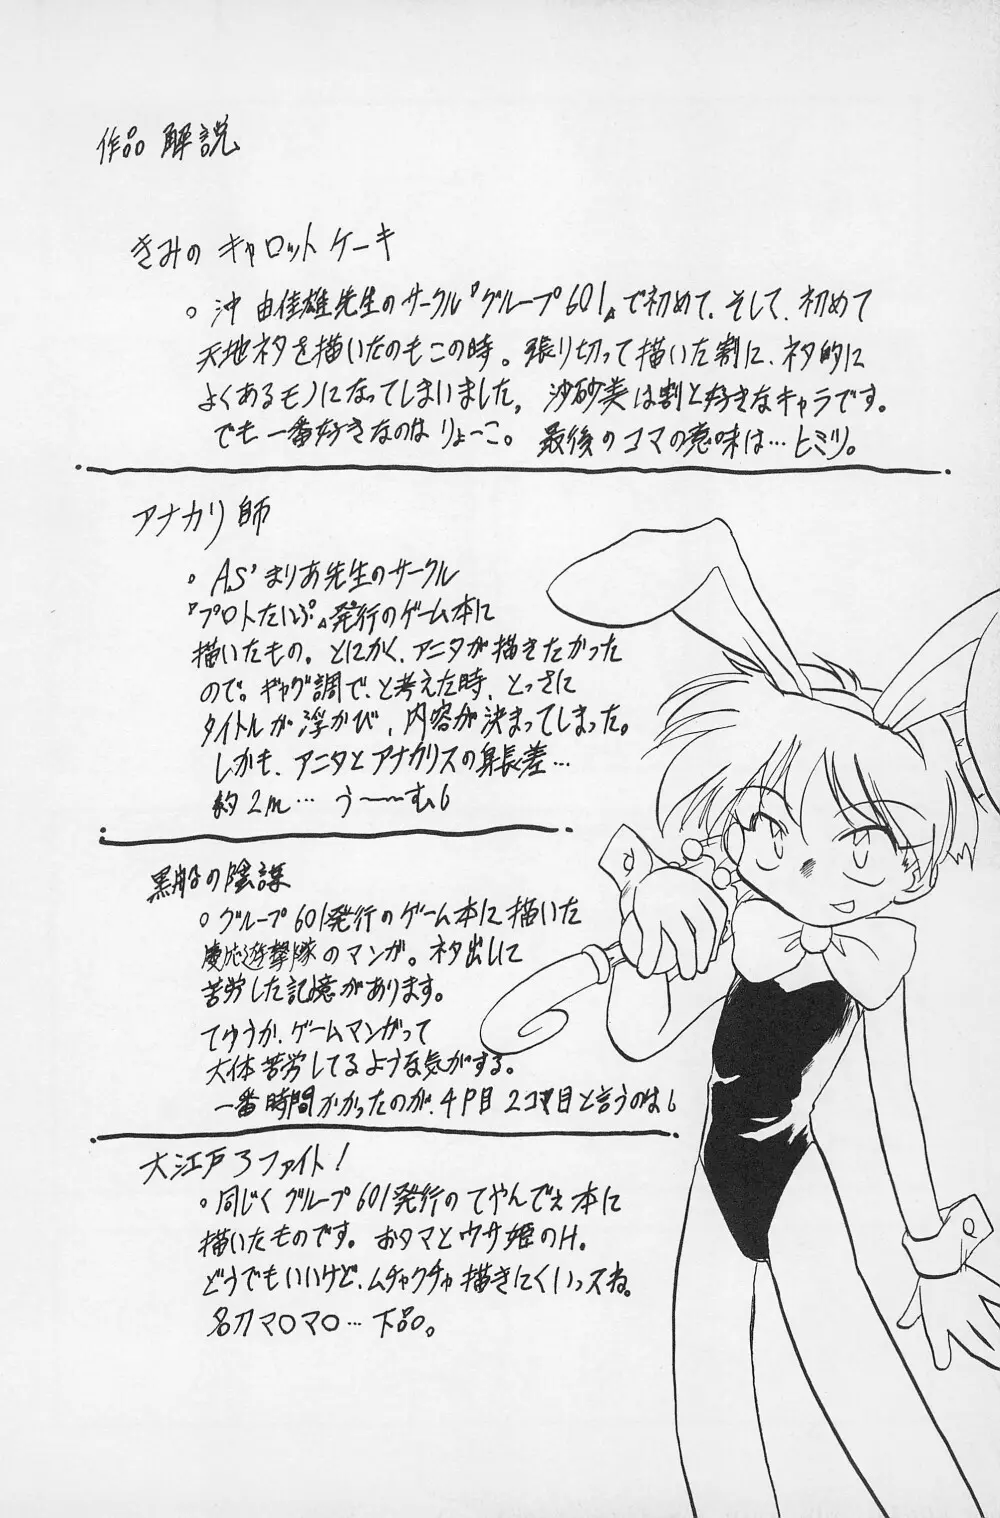 作品 解説
きみの キャロット ケーキ
○ 沖 由佳雄先生のサークル『グループ601』で初めて、そして、初めて
天地ネタを描いたのもこの時。張り切って描いた割に、ネタ的に
よくあるモノになってしまいました。 沙砂美は割と好きなキャラです。
でも 一番好きなのは りょーこ。 最後のコマの意味は…ヒミツ。
アナカリ師
○ A,S'まりあ先生のサークル
『プロトたいぷ』発行のゲーム本に
描いたもの。とにかく、アニタが描きたかった
ので。ギャグ調で、と考えた時、とっさに
タイトルが浮かび、内容が決まってしまった。
しかも、アニタとアナカリスの身長差…
約2m… う〜〜む。
黒船の陰謀
○ グループ601発行のゲーム本に描いた
慶応遊撃隊のマンガ。ネタ出しに
苦労した記憶があります。
てゆうか、ゲームマンガって
大体苦労してるような気がする。
一番時間かかったのが、4P目 2コマ目と言うのは。
大江戸ろファイト!
○ 同じく グループ601発行の てやんでぇ本に
描いたものです。 おタマとウサ姫のH。
どうでもいいけど、ムチャクチャ描きにくいっスね。
名刀マ○マ○…下品。